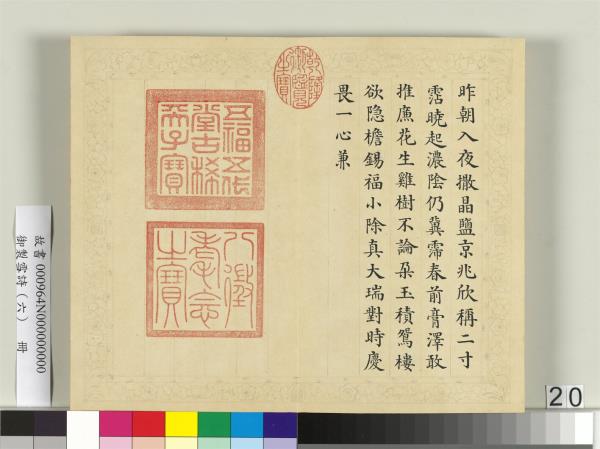 昨朝入夜撒晶鹽京兆欣稱二寸
霑曉起濃陰仍冀霈春前膏澤敢
推廉花生雞樹不論朶玉積鴛樓
欲隐檐錫福小除真大瑞對時慶
畏一心兼
乾隆御覽之寶
五福五代
堂古稀
天子寶
八徵
耄念
之寶
故書 000964N000000000
御製雪詩（六） 冊
20